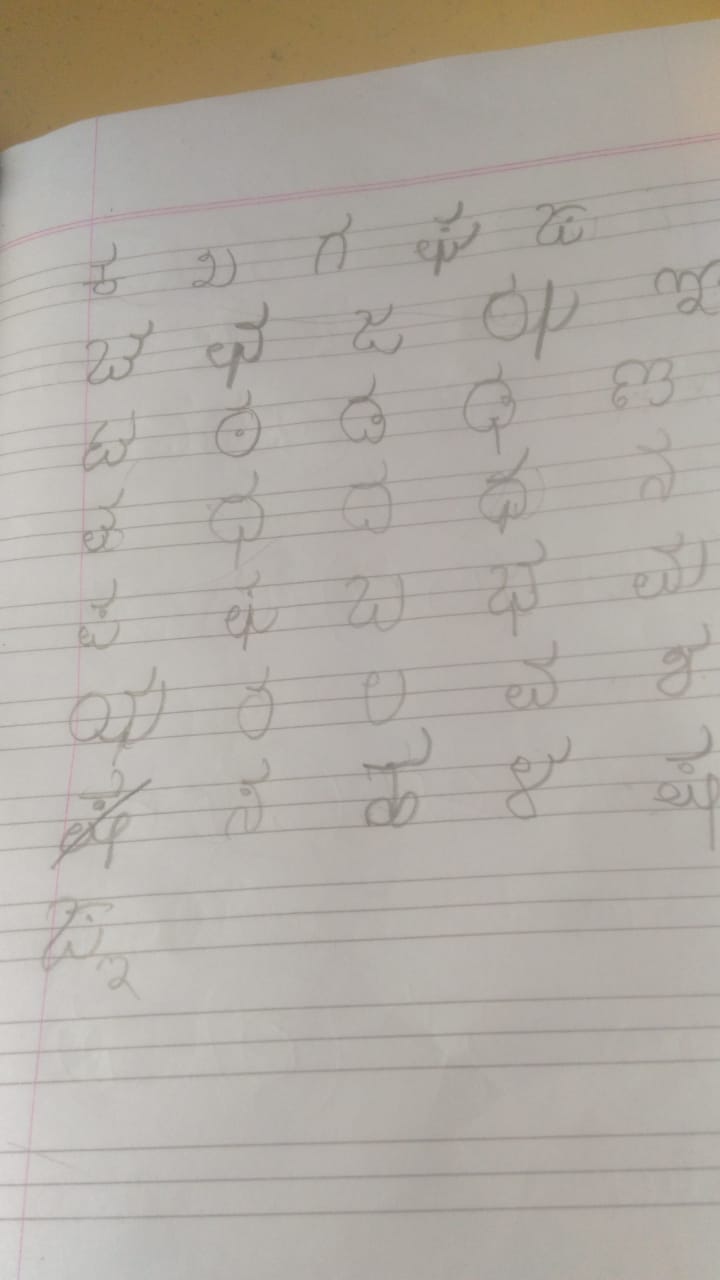 ಕ ಖ ಗ ಘ ಙ
ಚ ಛ ಜ ಝ ಞ
ಟ ಠ ಡ ಢ ಣ
ತ ಥ ದ ಧ ನ
ಪ ಫ ಬ ಭ ಮ
ಯ ರ ಲ ವ ಶ
ಷ ಸ ಹ ಳ ಷ